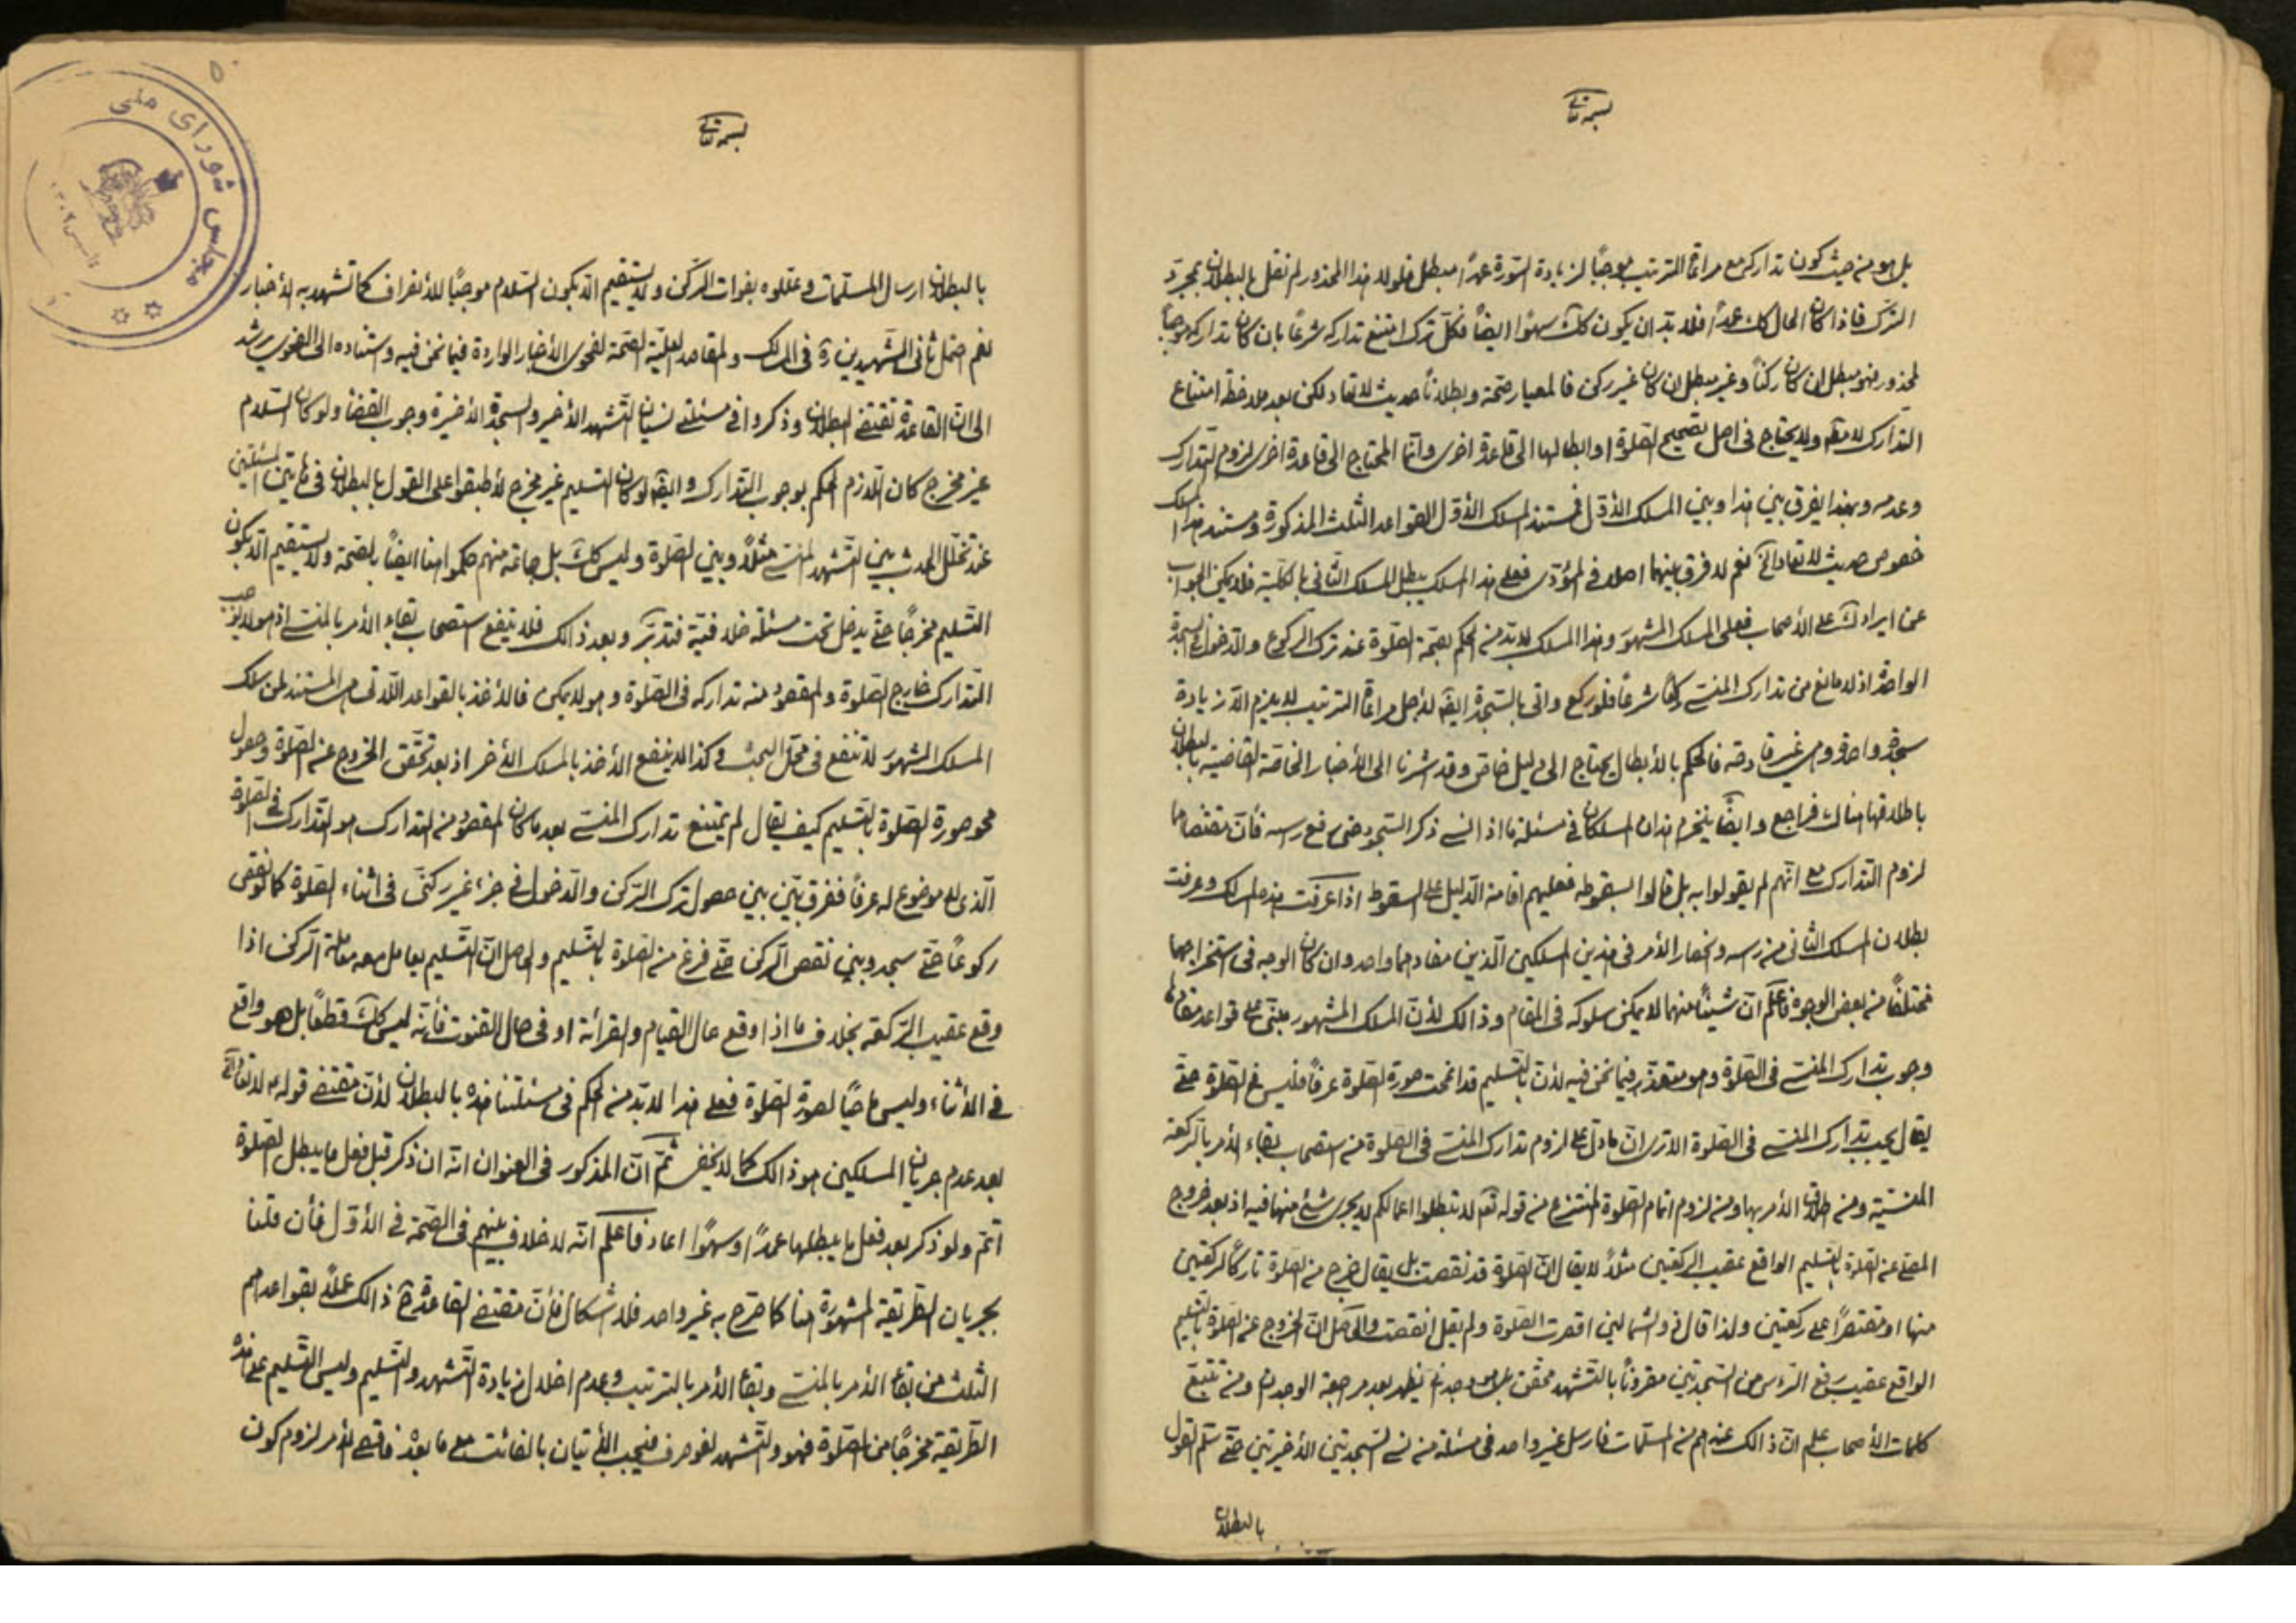 بسمه تعالی
بل هو من حيث كون تداركه مع مراعاة الترتيب موجبًا لزيادة السورة عمدًا مبطل فلولا هذا المحذور لم نقل بالبطلان بمجرد
الترك فاذا كان الحال كك عمدًا فلا بد ان يكون كك سهوًا ايضًا فكل ترك امتنع تداركه شرعًا بان كان تداركه موجبًا
لمحذور فهو مبطل ان كان ركنًا وغير مبطل ان كان غير ركن فالمعيار صحة وبطلانًا حديث لا تعاد لكن بعد ملاحظة امتناع
التدارك لا مطلقا ولا يحتاج في اصل تصحيح الصلوة او ابطالها الى قاعدة اخرى وانما المحتاج الى قاعدة اخرى لزوم التدارك
وعدمه وبهذا يفرق بين هذا وبين المسلك الأول فمستند المسلك الأول القواعد الثلث المذكورة ومستند هذا المسلك
خصوص حديث لا تعاد الخ نعم لا فرق بينهما اصلا في المؤدى فعلى هذا المسلك يبطل المسلك الثاني بالكلية فلا يمكن الجواب
عن ايرادك على الأصحاب فعلى المسلك المشهور وهذا المسلك لا بد من الحكم بصحة الصلوة عند ترك الركوع والدخول في السجدة
الواحدة اذ لا مانع من تدارك المنسي ركنًا شرعًا فلو ركع واتى بالسجدة ايضًا لأجل مراعاة الترتيب لا يلزم الا زيادة
سجدة واحدة وهي غير قادحة فالحكم بالأبطال يحتاج الى دليل خاص وقد اشرنا الى الأخبار الخاصة القاضية بالبطلان
باطلاقها هناك فراجع وايضًا ينخرم هذان المسلكان في مسئلة ما اذا نسي ذكر السجود حتى رفع رأسه فأن مقتضاهما
لزوم التدارك مع انهم لم يقولوا به بل قالوا بسقوطه فعليهم اقامة الدليل على السقوط اذا عرفت هذه المسالك وعرفت
بطلان المسلك الثاني من رأسه وانحصار الأمر في هذين المسلكين الذين مفادهما واحد وان كان الوجه في استخراجهما
مختلفًا من بعض الوجوه فاعلم ان شيئًا منهما لا يمكن سلوكه في المقام وذالك لأن المسلك المشهور مبتن على قواعد مفادها
وجوب تدارك المنسي في الصلوة وهو متعذر فيما نحن فيه لأن بالتسليم قد انمحت صورة الصلوة عرفًا فليس في الصلوة حتى
يقال يجب تدارك المنسي في الصلوة الا ترى ان ما دل على لزوم تدارك المنسي في الصلوة من استصحاب بقاء الأمر بالركعة
المنسية ومن اطلاق الأمر بها ومن لزوم اتمام الصلوة المنتزع من قوله تعم لا تبطلوا اعمالكم لا يجري شئ منها فيه اذ بعد خروج
المصلي عن الصلوة بالتسليم الواقع عقيب الركعتين مثلًا لا يقال ان الصلوة قد نقصت بل يقال خرج من الصلوة تاركًا لركعتين
منها او مقتصرًا على ركعتين ولذا قال ذو الشمالين اقصرت الصلوة ولم يقل انقصت والحاصل ان الخروج عن الصلوة بالتسليم
الواقع عقيب رفع الرأس من السجدتين مقرونًا بالتشهد محقق بل هو وجداني يظهر بعد مراجعة الوجدان ومن تتبع
كلمات الأصحاب علم ان ذالك عندهم من المسلمات فارسل غير واحد في مسئلة من نسي السجدتين الأخيرتين حتى سلم القول
بالبطلان
بسمه تعالی
بالبطلان ارسال المسلمات وعللوه بفوات الركن ولا يستقيم الا بكون السلام موجبًا للأنصراف كما تشهد به الأخبار
نعم احتمل ثاني الشهيدين ره في المسالك والمقاصد العلية الصحة لفحوى الأخبار الواردة فيما نحن فيه واستناده الى الفحوى يرشد
الى ان القاعدة تقتضي البطلان وذكروا في مسئلتي نسيان التشهد الأخير والسجدة الأخيرة وجوب القضاء ولو كان السلام
غير مخرج كان اللازم الحكم بوجوب التدارك وايضا لو كان التسليم غير مخرج لأطبقوا على القول بالبطلان في هاتين المسئلتين
عند تخلل الحدث بين التشهد المنسي مثلًا وبين الصلوة وليس كك بل جماعة منهم حكموا هنا ايضًا بالصحة ولا يستقيم الا بكون
التسليم مخرجًا حتى يدخل تحت مسئلة خلافية فتدبر وبعد ذالك فلا ينفع استصحاب بقاء الأمر بالمنسي اذ هو لا يوجب
التدارك خارج الصلوة والمقصود منه تداركه في الصلوة وهو لا يمكن فالأخذ بالقواعد اللاتي هي المستند لمن سلك
المسلك المشهور لا تنفع في محل البحث وكذا لا ينفع الأخذ بالمسلك الأخر اذ بعد تحقق الخروج عن الصلوة وحصول
محو صورة الصلوة بالتسليم كيف يقال لم يمتنع تدارك المنسي بعد ما كان المقصود من التدارك هو التدارك في الصلوة
الذي لا موضوع له عرفًا ففرق بين بين حصول ترك الركن والدخول في جزء غير ركني في اثناء الصلوة كما لو نقص
ركوعًا حتى سجد وبين نقص الركن حتى فرغ من الصلوة بالتسليم والحاصل ان التسليم يعامل معه معاملة الركن اذا
وقع عقيب الركعة بخلاف ما اذا وقع حال القيام والقرائة او في حال القنوت فأنه ليس كك قطعًا بل هو واقع
في الأثناء وليس ماحيًا لصورة الصلوة فعلى هذا لا بد من الحكم في مسئلتنا هذه بالبطلان لأن مقتضى قوله ع لا تعاد الخ
بعد عدم جريان المسلكين هو ذالك كما لا يخفى ثم ان المذكور في العنوان انه ان ذكر قبل فعل ما يبطل الصلوة
اتم ولو ذكر بعد فعل ما يبطلها عمدًا وسهوًا اعاد فاعلم انه لا خلاف بينهم في الصحة في الأول فأن قلنا
بجريان الطريقة المشهورة هنا كما صرح به غير واحد فلا اشكال فأن مقتضى القاعدة ح ذالك عملًا بقواعدهم
الثلث من بقاء الأمر بالمنسي وبقاء الأمر بالترتيب وعدم اخلال زيادة التشهد والتسليم وليس التسليم على هذه
الطريقة مخرجًا من الصلوة فهو والتشهد لغو صرف فيجب الأتيان بالفائت مع ما بعده فاقصى الأمر لزوم كون
مجلس شورای ملی